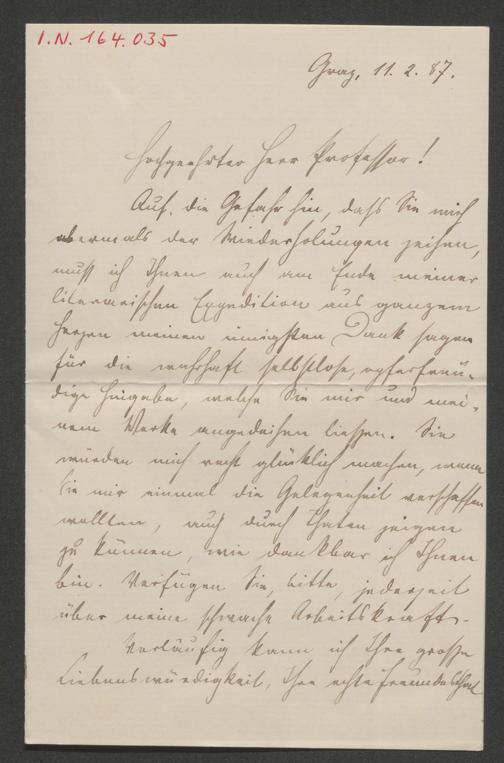 I.N. 164.035
Graz, 11. 2. 87.
Hochgeehrter Herr Professor!
Auf die Gefahr hin, daſs Sie mich
abermals der Wiederholungen zeihen,
muſs ich Ihnen auch am Ende meiner
literarischen Expedition aus ganzem
Herzen meinen innigsten Dank sagen
für die wahrhaft selbstlose, opferfreu-
dige Hingabe, welche Sie mir und mei-
nem Werke angedeihen lieſsen. Sie
würden mich recht glücklich machen, wenn
Sie mir einmal die Gelegenheit verschaffen
wollten, auch durch Thaten zeigen
zu können, wie dankbar ich Ihnen
bin. Verfügen Sie, bitte, jederzeit
über meine schwache Arbeitskraft.
Vorläufig kann ich Ihre groſse
Liebenswürdigkeit, Ihre echte Freundesthat